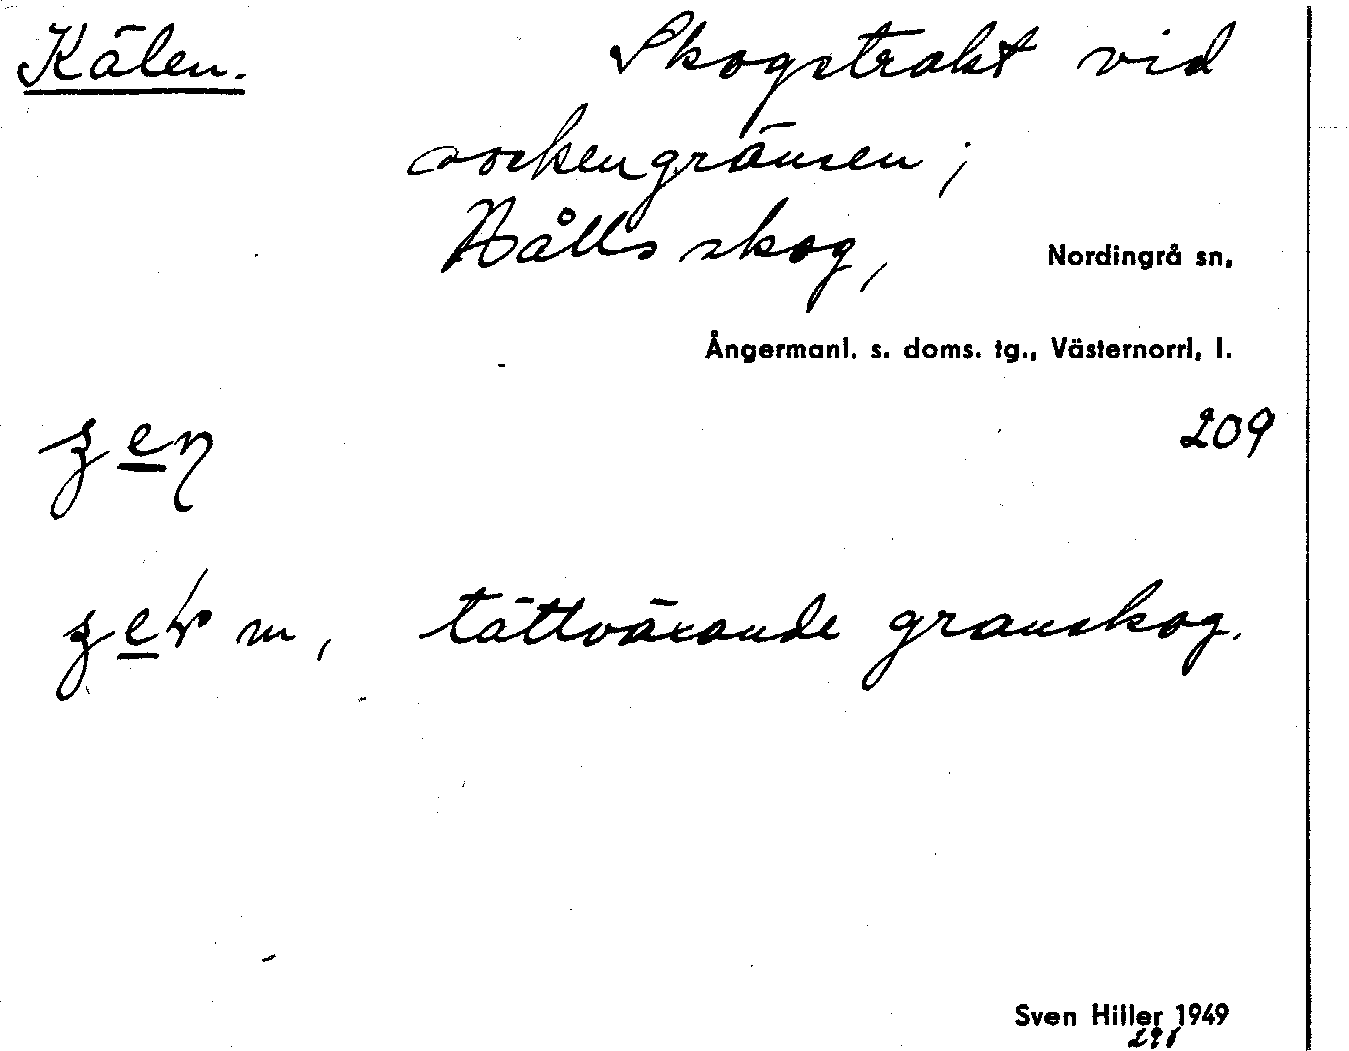 Kälen. Skogstrakt vid
sockengränsen;
Hålls skog, Nordingrå sn,
Ångermanl. s. doms. tg., Västernorrl. l.
209
m, tättväxande granskog.
Sven Hiller 1949